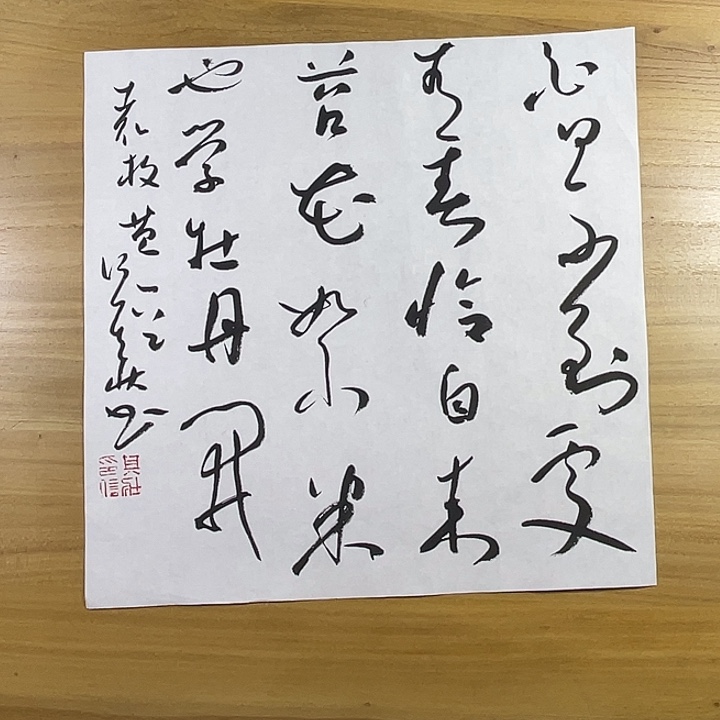 白日不到处
青春恰自来
苔花如小米
也学牡丹开
袁枚苔一首
书